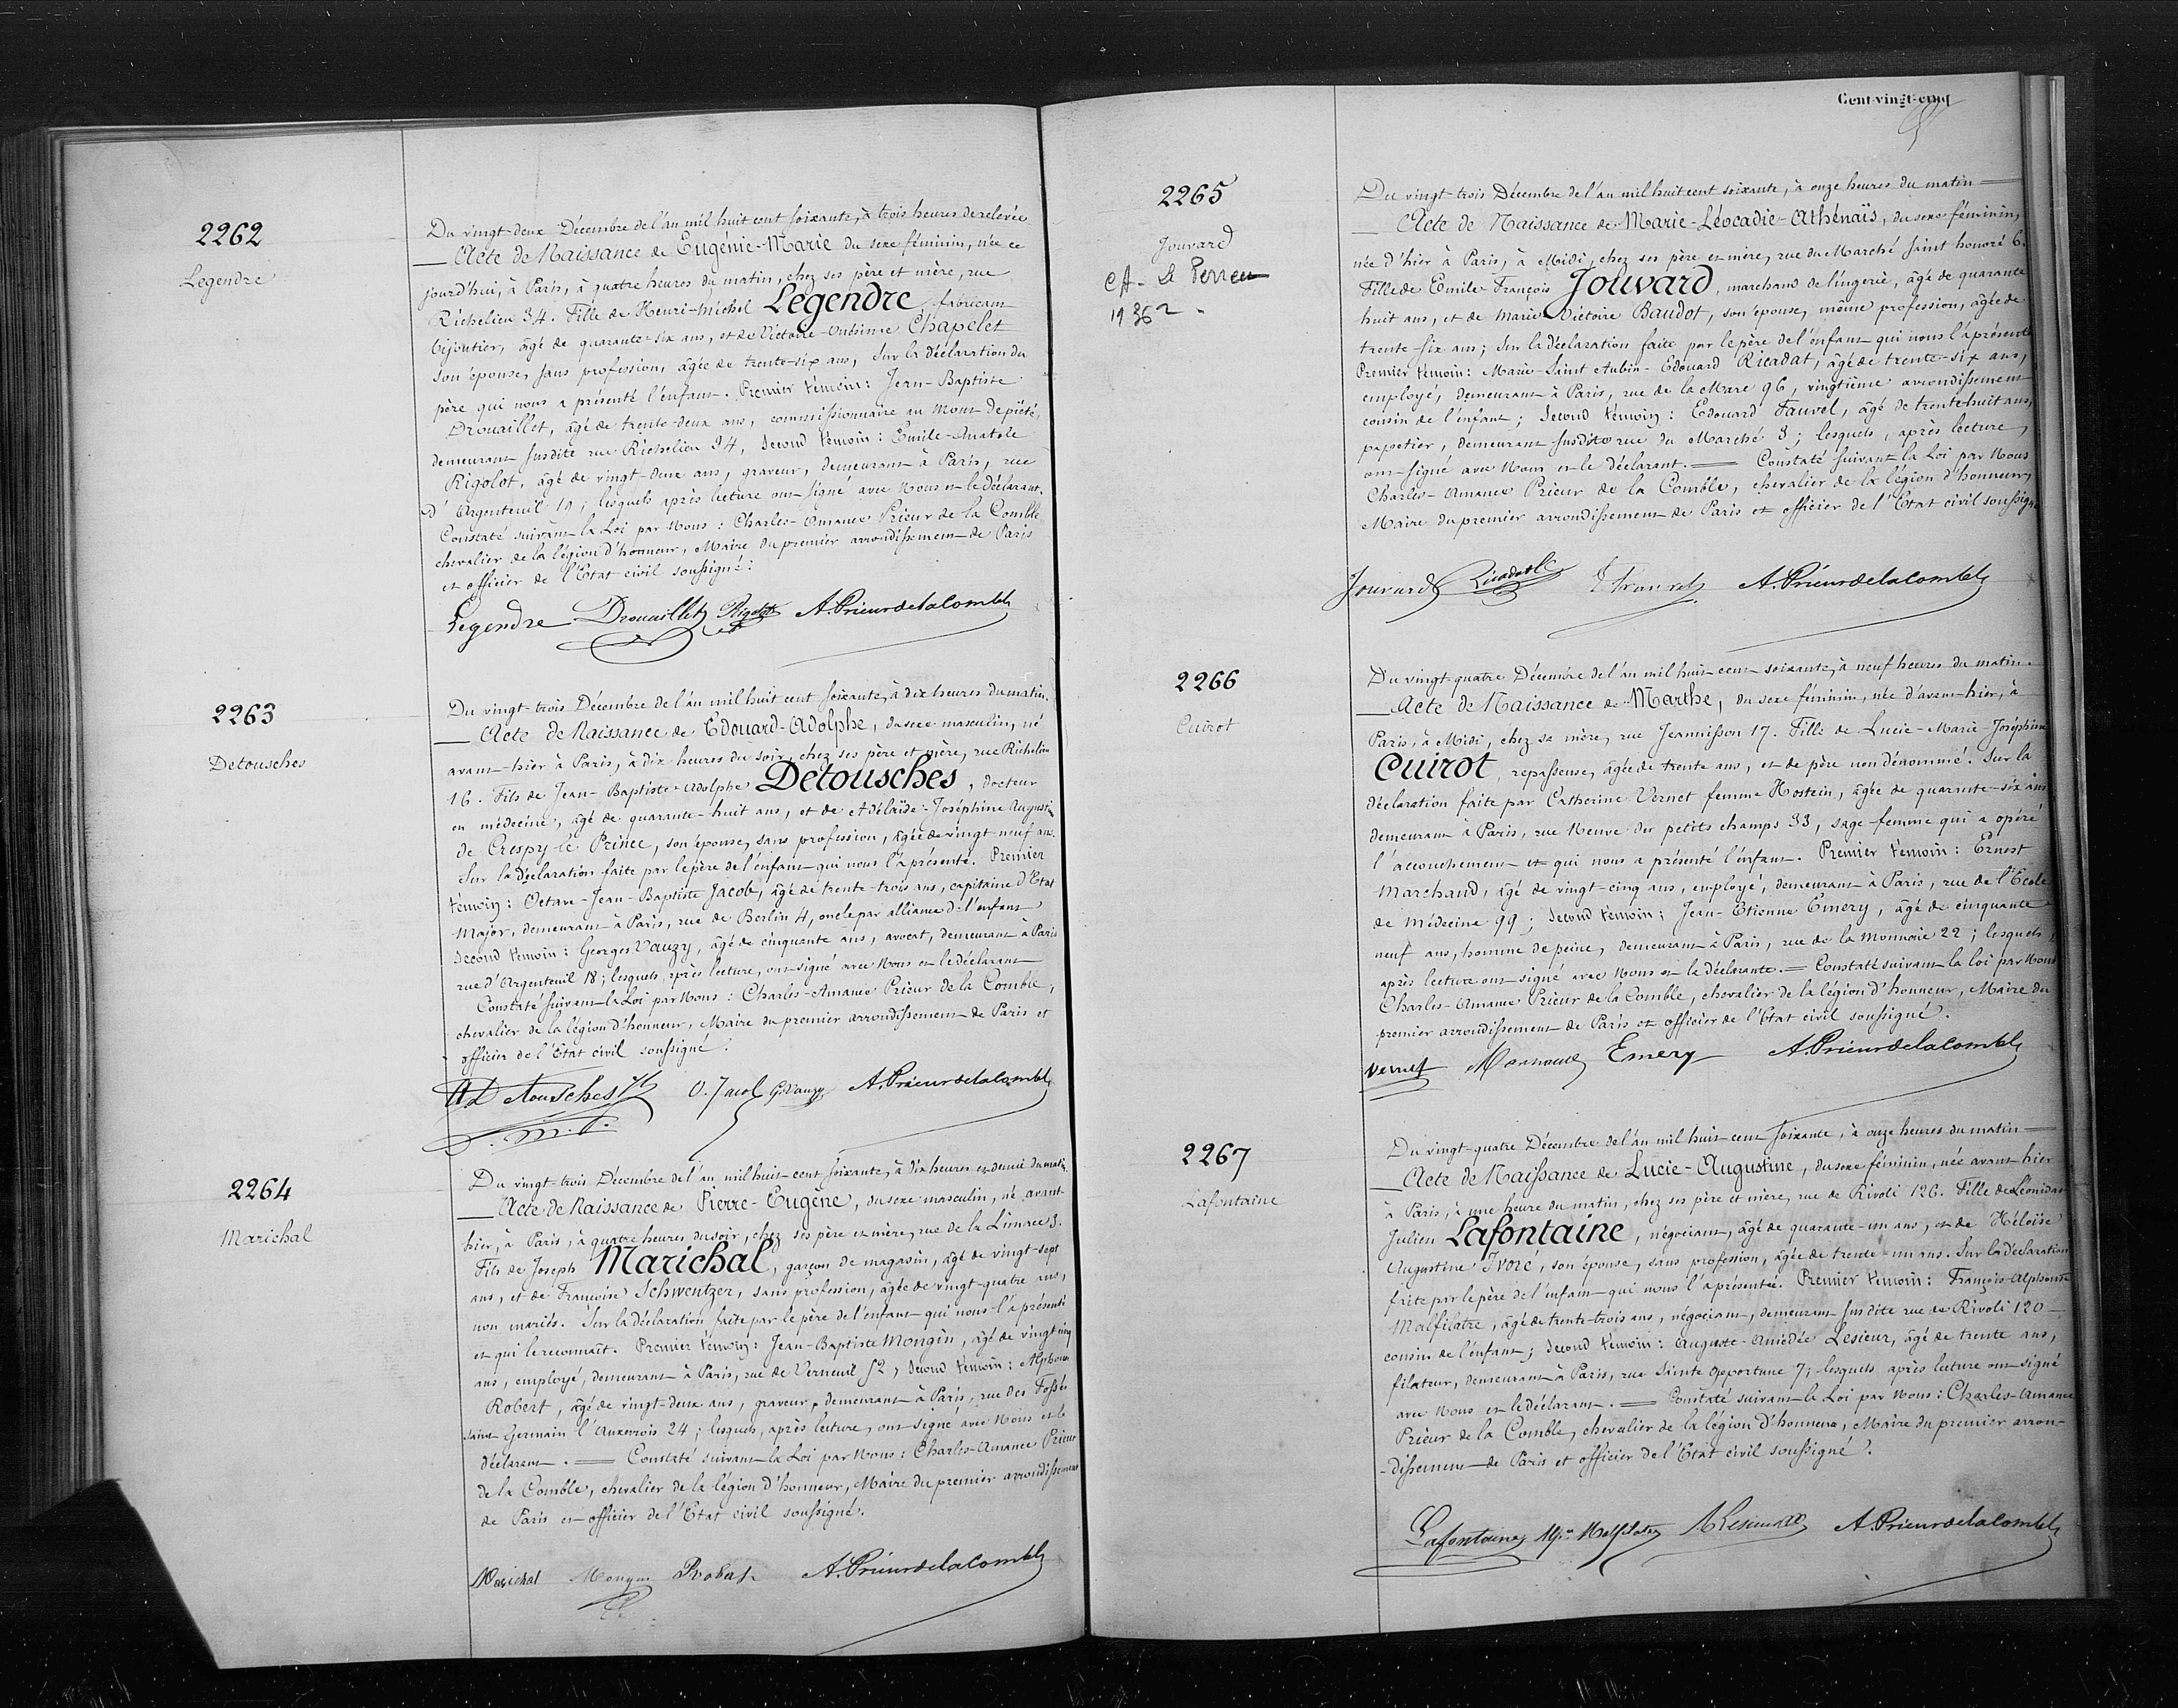 2262
Legendre
Du vingt-deux Décembre de l'an mil huit cent soixante, à trois heures de relevée
Acte de Naissance de Eugénie-Marie du sexe féminin, née ce
jourd'hui, à Paris, à quatre heures du matin, chez ses père et mère, rue
Richelieu 34. Fille de Henri-Michel Legendre, fabricant
bijoutier, âgé de quarante-six ans, et de Victoire-Ontsime Chapelet
son épouse, sans profession, âgée de trente-six ans, Sur la déclaration du
père qui nous a présenté l'enfant. Premier témoin: Jean-Baptiste
Drouaillet, âgé de trente-deux ans, commissionnaire au Mont de piété,
demeurant susdite rue Richelieu 34, Second témoin: Emile-Anatole
Rigolot, âgé de vingt-deux ans, graveur, demeurant à Paris, rue
d'Argenteuil 19; lesquels après lecture ont signé avec Nous et le déclarant.
Constaté suivant la Loi par Nous: Charles-Amance Prieur de la Comble
chevalier de la légion d'honneur, Maire du premier arrondissement de Paris
et officier de l'Etat civil soussigné:
Legendre Drouaillet Rigolot A. Prieur de la Comble
2263
Detousches
Du vingt-trois Décembre de l'an mil huit cent soixante, à dix heures du matin.
Acte de Naissance de Edouard-Adolphe, du sexe masculin, né
avant-hier à Paris, à dix heures du soir, chez ses père et mère, rue Richelieu
16. Fils de Jean-Baptiste-Adolphe Detousches, docteur
en médecine, âgé de quarante-huit ans, et de Adélaïde-Joséphine Augustin
de Crespy le Prince, son épouse, sans profession, âgée de vingt neuf ans.
Sur la déclaration faite par le père de l'enfant qui nous l'a présenté. Premier
témoin: Octave-Jean-Baptiste Jacob, âgé de trente-trois ans, capitaine d'Etat
Major, demeurant à Paris, rue de Berlin 4, oncle par alliance de l'enfant
Second témoin: Georges Vauzy, âgé de cinquante ans, avocat, demeurant à Paris
rue d'Argenteuil 18; lesquels, après lecture, ont signé avec Nous et le déclarant
Constaté suivant la Loi par Nous: Charles-Amance Prieur de la Comble,
chevalier de la légion d'honneur, Maire du premier arrondissement de Paris et
officier de l'Etat civil soussigné.
AD etousches O. Jacob G. Vauzy A. Prieur de la Comble
D. M. P.
2264
Marichal
Du vingt-trois Décembre de l'an mil huit-cent soixante, à dix heures et demie du matin
Acte de Naissance de Pierre-Eugène, du sexe masculin, né avant-
hier, à Paris, à quatre heures du soir, chez ses père et mère, rue de la Limace 3.
Fils de Joseph Marichal, garçon de magasin, âgé de vingt-sept
ans, et de Françoise Schwentzer, sans profession, âgée de vingt-quatre ans,
non mariés. Sur la déclaration faite par le père de l'enfant qui nous l'a présenté
et qui le reconnaît. Premier témoin: Jean-Baptiste Mongin, âgé de vingt cinq
ans, employé, demeurant à Paris, rue de Verneuil 52, Second témoin: Alphonse
Robert, âgé de vingt-deux ans, graveur, demeurant à Paris, rue des Fossés
Saint Germain l'Auxerrois 24; lesquels, après lecture, ont signé avec Nous et le
déclarant. Constaté suivant la Loi par Nous: Charles-Amance Prieur
de la Comble, chevalier de la légion d'honneur, Maire du premier arrondissement
de Paris et officier de l'Etat civil soussigné.
Marichal Mongin Robert A. Prieur de la Comble
Cent-vingt-cinq
2265
Jouvard
1936
Du vingt-trois Décembre de l'an mil huit cent soixante, à onze heures du matin
Acte de Naissance de Marie-Léocadie-Athénaïs, du sexe féminin,
née d'hier à Paris, à Midi, chez ses père et mère, rue du Marché Saint honoré 6.
Fille de Emile-François Jouvard, marchand de lingerie, âgé de quarante
huit ans, et de Marie Victoire Baudot, son épouse, même profession, âgée de
trente-six ans; Sur la déclaration faite par le père de l'enfant qui nous l'a présenté
Premier témoin: Marie-Saint Aubin-Edouard Ricadat, âgé de trente-six ans,
employé, demeurant à Paris, rue de la Mare 96, vingtième arrondissement
cousin de l'enfant; Second témoin: Edouard Fauvel, âgé de trente-huit ans,
papetier, demeurant susdite rue du Marché 3; lesquels, après lecture,
ont signé avec Nous et le déclarant. Constaté suivant la Loi par Nous
Charles-Amance Prieur de la Comble, chevalier de la légion d'honneur,
Maire du premier arrondissement de Paris et officier de l'Etat civil soussigné
Jouvard Ricadat A. Prieur de la Comble
2266
Cuirot
Du vingt-quatre Décembre de l'an mil huit-cent soixante, à neuf heures du matin.
Acte de Naissance de Marthe, du sexe féminin, née d'avant-hier, à
Paris, à Midi, chez sa mère, rue Jeannisson 17. Fille de Lucie-Marie-Joséphine
Cuirot, repasseuse, âgée de trente ans, et de père non dénommé. Sur la
déclaration faite par Catherine Vernet femme Hostein, âgée de quarante-six ans
demeurant à Paris, rue Neuve des petits champs 33, sage-femme qui a opéré
l'accouchement et qui nous a présenté l'enfant. Premier témoin: Ernest
Marchand, âgé de vingt-cinq ans, employé, demeurant à Paris, rue de l'Ecole
de Médecine 99; Second témoin: Jean-Etienne Emery, âgé de cinquante
neuf ans, homme de peine, demeurant à Paris, rue de la Monnaie 22; lesquels,
après lecture ont signé avec Nous et le déclarante. Constaté suivant la loi par Nous
Charles-Amance Prieur de la Comble, chevalier de la légion d'honneur, Maire du
premier arrondissement de Paris et officier de l'Etat civil soussigné.
Vernet Emery A. Prieur de la Comble
2267
Lafontaine
Du vingt-quatre Décembre de l'an mil huit-cent soixante, à onze heures du matin
Acte de Naissance de Lucie-Augustine, du sexe féminin, née avant hier
à Paris, à une heure du matin, chez ses père et mère, rue de Rivoli 126. Fille de Léonidas
Julien Lafontaine, négociant, âgé de quarante-un ans, et de Héloïse
Augustine Ivoré, son épouse, sans profession, âgée de trente-un ans. Sur la déclaration
faite par le père de l'enfant qui nous l'a présentée. Premier témoin: François-Alphonse
Malfilatre, âgé de trente-trois ans, négociant, demeurant susdite rue de Rivoli 120
cousin de l'enfant; Second témoin: Auguste-Amédée Lesieur, âgé de trente ans,
filateur, demeurant à Paris, rue Sainte Opportune 7; lesquels après lecture ont signé
avec Nous et le déclarant. Constaté suivant la Loi par Nous: Charles-Amance
Prieur de la Comble, chevalier de la légion d'honneur, Maire du premier arron-
-dissement de Paris et officier de l'Etat civil soussigné.
Lafontaine Malfilatre A. Prieur de la Comble